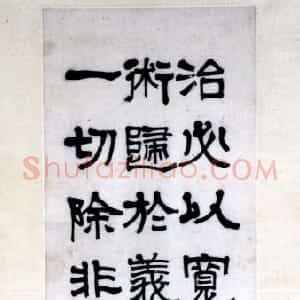 治必以寬
術歸於義
一切除非
Shufaziliao.com